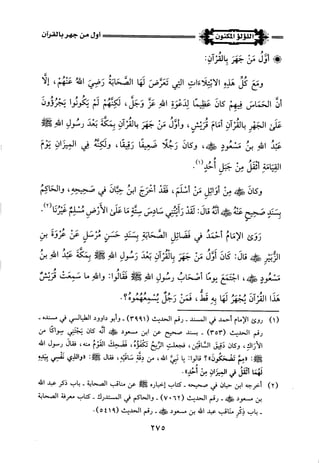 اللؤلؤ المكنون
أول من جهر بالقرآن
* أَوَّلُ مَنْ جَهَرَ بِالْقُرْآنِ:
وَمَعَ كُلِّ هَذِهِ الِابْتِلَاءَاتِ التِي تَعَرَّضَ لَهَا الصَّحَابَةُ رَضِيَ اللهُ عَنْهُمْ، إِلَّا
أَنَّ الْحَمَاسَ فِيهِمْ كَانَ عَظِيمًا لِدَعْوَةِ اللهِ عَزَّ وَجَلَّ، لَكِنَّهُمْ لَمْ يَكُونُوا يَجْرُؤُونَ
عَلَى الْجَهْرِ بِالْقُرْآنِ أَمَامَ قُرَيْشٍ، وَأَوَّلُ مَنْ جَهَرَ بِالْقُرْآنِ بِمَكَّةَ بَعْدَ رَسُولِ اللهِ ﷺ
عَبْدُ اللهِ بنُ مَسْعُودٍ ﷺ، وَكَانَ رَجُلًا ضَعِيفًا رَقِيقًا، وَلَكِنَّهُ فِي الْمِيزَانِ يَوْمَ
الْقِيَامَةِ أَثْقَلُ مِنْ جَبَلِ أُحُدٍ(١).
وَكَانَ ﷺ مِنْ أَوَائِلِ مَنْ أَسْلَمَ، فَقَدْ أَخْرَجَ ابنُ حِبَّانَ فِي صَحِيحِهِ، وَالحَاكِمُ
بِسَنَدٍ صَحِيحٍ عَنْهُ ﷺ أَنَّهُ قَالَ: لَقَدْ رَأَيْتُنِي سَادِسَ سِتَّةٍ مَا عَلَى الْأَرْضِ مُسْلِمٌ غَيْرُنَا(٢).
رَوَى الْإِمَامُ أَحْمَدُ فِي فَضَائِلِ الصَّحَابَةِ بِسَنَدٍ حَسَنٍ مُرْسَلٍ عَنْ عُرْوَةَ بنِ
الزُّبَيْرِ قَالَ: كَانَ أَوَّلَ مَنْ جَهَرَ بِالْقُرْآنِ بَعْدَ رَسُولِ اللهِ ﷺ بِمَكَّةَ عَبْدُ اللهِ بنُ
مَسْعُودٍ ﷺ، اجْتَمَعَ يَوْمًا أَصْحَابُ رَسُولِ اللهِ ﷺ فَقَالُوا: وَاللهِ مَا سَمِعَتْ قُرَيْشٌ
هَذَا الْقُرْآنَ يُجْهَرُ لَهَا بِهِ قَطُّ، فَمَنْ رَجُلٌ يُسْمِعُهُمُوهُ؟.
(١) روى الإمام أحمد في المسند - رقم الحديث (٣٩٩١) - وأبو داود الطيالسي في مسنده -
رقم الحديث (٣٥٣) - بسند صحيح عن ابن مسعود ﷺ أنه كان يَجْتَنِي سِوَاكًا من
الأَرَاكِ، وكان دَقِيقَ السَّاقَيْنِ، فجعلتِ الرِّيحُ تَكْفَؤُهُ، فضحكَ القومُ منه، فقال رسول الله
ﷺ: «مِمَّ تَضْحَكُونَ»؟ قالوا: يا نَبِيَّ الله، مِن دِقَّةِ سَاقَيْهِ، فقال ﷺ: «والذِي نَفْسِي بِيَدِهِ
لَهُمَا أَثْقَلُ فِي الْمِيزَانِ مِنْ أُحُدٍ».
(٢) أخرجه ابن حبان في صحيحه - كتاب إخباره ﷺ عن مناقب الصحابة - باب ذكر عبد الله
بن مسعود ﷺ - رقم الحديث (٧٠٦٢) - والحاكم في المستدرك - كتاب معرفة الصحابة
- باب ذكر مناقب عبد الله بن مسعود ﷺ - رقم الحديث (٥٤١٩).
٢٧٥